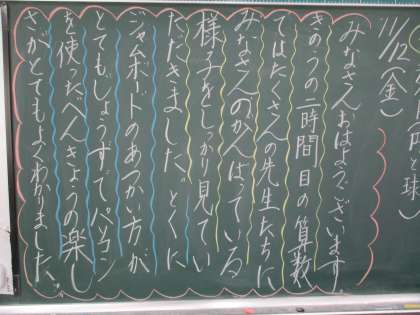 11/12(金)
みなさんおはようございます。
きのうの二時間目の算数
ではたくさんの先生たちに
みなさんのがんばっている
様子をしっかり見てい
ただきました。とくに
ジャムボードのあつかい方が
とてもじょうずでパソコン
を使ったべんきょうの楽し
さがとてもよくわかりました。